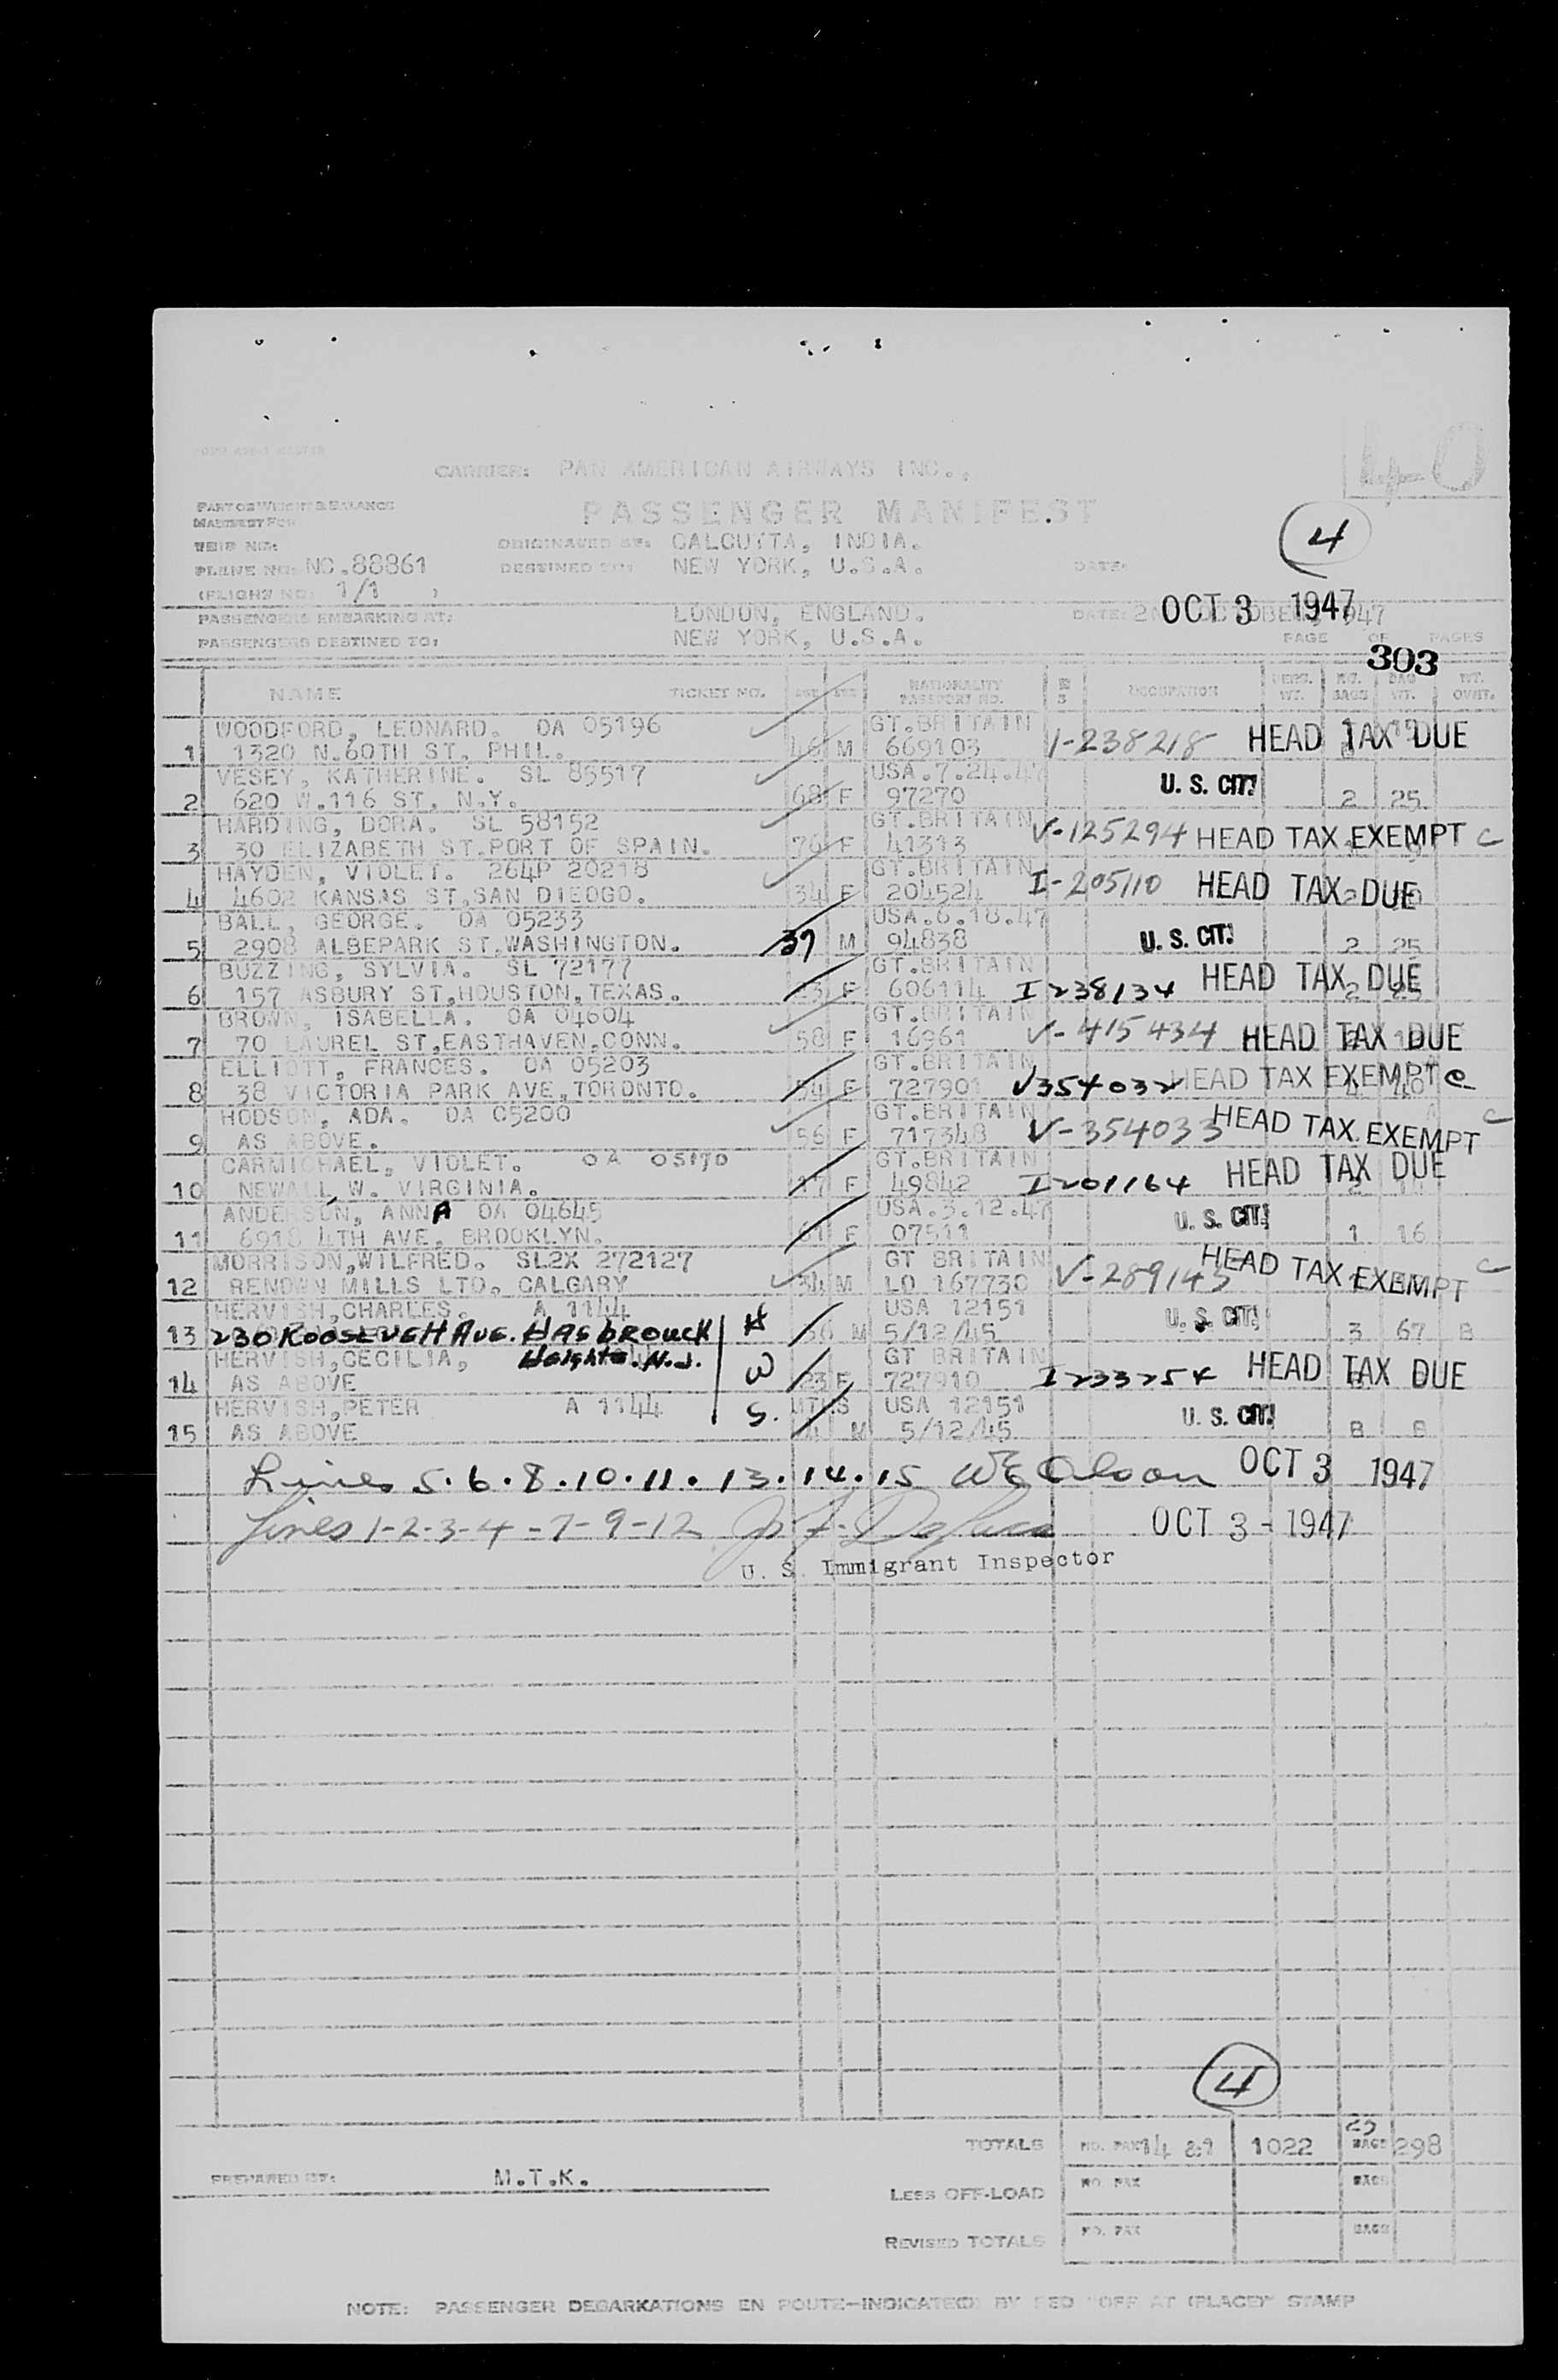 40
CARRIER: PAN AMERICAN AIRWAYS INC.,
PART OF WEIGHT & BALANCE
MANIFEST FOR
PASSENGER MANIFEST
4
TRIP NO:
ORIGINATED AT: CALCUTTA, INDIA.
PLANE NO: NC.88861
DESTINED TO: NEW YORK, U.S.A.
DATE:
(FLIGHT NO. 1/1 )
PASSENGERS EMBARKING AT: LONDON, ENGLAND. DATE: OCT 3 1947
PASSENGERS DESTINED TO: NEW YORK, U.S.A. PAGE OF PAGES
303
NAME TICKET NO. AGE SEX NATIONALITY PASSPORT NO. OCCUPATION PERS. WT. NO. BAGS BAG WT. WT. OVWT.
WOODFORD, LEONARD. OA 05196 GT.BRITAIN
1 1320 N.60TH ST, PHIL. 46 M 669103 I-238218 HEAD TAX DUE
VESEY, KATHERINE. SL 85517 USA.7.24.47
2 620 W.116 ST, N.Y. 68 F 97270 U. S. CIT. 2 25
HARDING, DORA. SL 58152 GT.BRITAIN
3 30 ELIZABETH ST.PORT OF SPAIN. 76 F 41313 V-125294 HEAD TAX EXEMPT C
HAYDEN, VIOLET. 264P 20218 GT.BRITAIN
4 4602 KANSAS ST,SAN DIEOGO. 34 F 204524 I-205110 HEAD TAX DUE
BALL, GEORGE. OA 05233 USA.6.18.47
5 2908 ALBEPARK ST.WASHINGTON. 39 M 94838 U. S. CIT. 2 25
BUZZING, SYLVIA. SL 72177 GT.BRITAIN
6 157 ASBURY ST,HOUSTON,TEXAS. 23 F 606114 I238134 HEAD TAX DUE
BROWN, ISABELLA. OA 04604 GT.BRITAIN
7 70 LAUREL ST,EASTHAVEN,CONN. 58 F 16961 V-415434 HEAD TAX DUE
ELLIOTT, FRANCES. OA 05203 GT.BRITAIN
8 38 VICTORIA PARK AVE,TORONTO. 54 F 727901 V354032 HEAD TAX EXEMPT C
HODSON, ADA. OA 05200 GT.BRITAIN
9 AS ABOVE. 56 F 717348 V-354033 HEAD TAX EXEMPT C
CARMICHAEL, VIOLET. OA 05170 GT.BRITAIN
10 NEWALL,W. VIRGINIA. 17 F 49842 I201164 HEAD TAX DUE
ANDERSON, ANNA OA 04645 USA.3.12.47
11 6918 4TH AVE, BROOKLYN. 61 F 07511 U. S. CIT. 1 16
MORRISON,WILFRED. SL2X 272127 GT BRITAIN
12 RENOWN MILLS LTD, CALGARY 34 M LO 167730 V-289145 HEAD TAX EXEMPT C
HERVISH,CHARLES. A 1144 USA 12151
13 230 ROOSEVEHT AVE. HASBROUCK H 36 M 5/12/45 U. S. CIT. 3 67 B
HERVISH,CECILIA, Heights. N.J. GT BRITAIN
14 AS ABOVE W 23 F 727910 I233254 HEAD TAX DUE
HERVISH,PETER A 1144 S. MTHS USA 12151
15 AS ABOVE M 5/12/45 U. S. CIT. B B
Lines 5.6.8.10.11.13.14.15 WE Olson OCT 3 1947
Lines 1-2-3-4-7-9-12 OCT 3 - 1947
U. S. Immigrant Inspector
4
TOTALS NO. PAX 14 &1 1022 25 BAGS 298
PREPARED BY: M.T.K.
LESS OFF-LOAD NO. PAX BAGS
REVISED TOTALS NO. PAX BAGS
NOTE: PASSENGER DEBARKATIONS EN ROUTE-INDICATED BY RED "OFF AT (PLACE)" STAMP